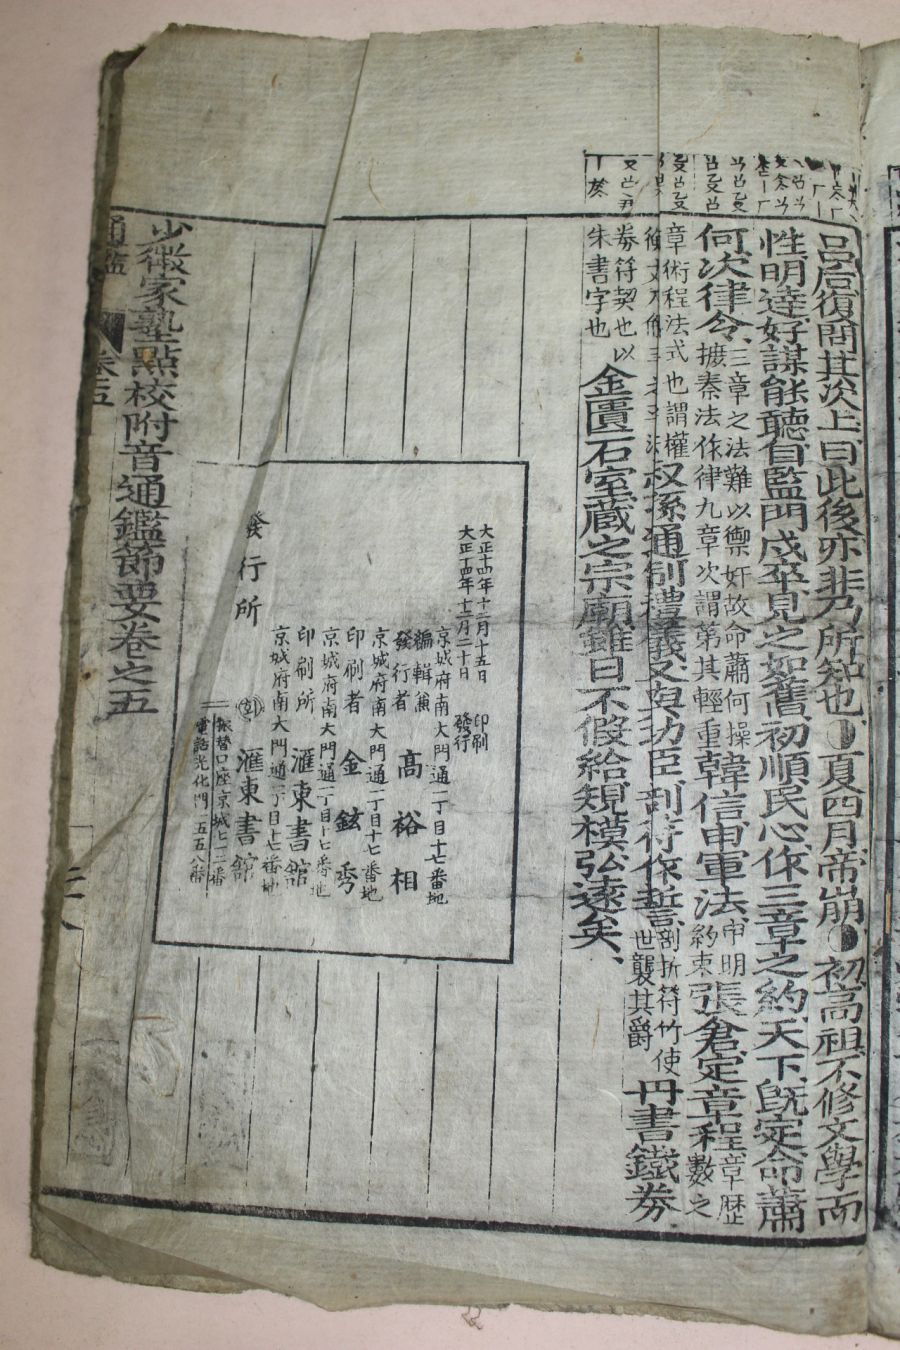 呂后復問其次上曰此後亦非乃所知也●夏四月帝崩●初高祖不修文學而
性明達好謀能聽自監門戍卒見之如舊初順民心作三章之約天下旣定命蕭
何次律令三章之法難以禦奸故命蕭何摭秦法作律九章次謂第其輕重韓信申軍法申明約束張倉定章程章歷數之
章術程法式也謂權叔孫通制禮儀又與功臣剖符作誓剖折符竹使世襲其爵丹書鐵券
券符契也以
朱書字也金匱石室藏之宗廟雖日不暇給規模弘遠矣
大正十四年十二月十五日 印刷
大正十四年十二月二十日 發行
京城府南大門通一丁目十七番地
編輯兼
發行者 高裕相
京城府南大門通一丁目十七番地
印刷者 金鉉秀
京城府南大門通一丁目十七番地
印刷所 滙東書館
京城府南大門通一丁目十七番地
發行所 滙東書館
振替口座京城七一二番
電話光化門一五五八番
少微家塾點校附音通鑑節要卷之五
通鑑 卷五